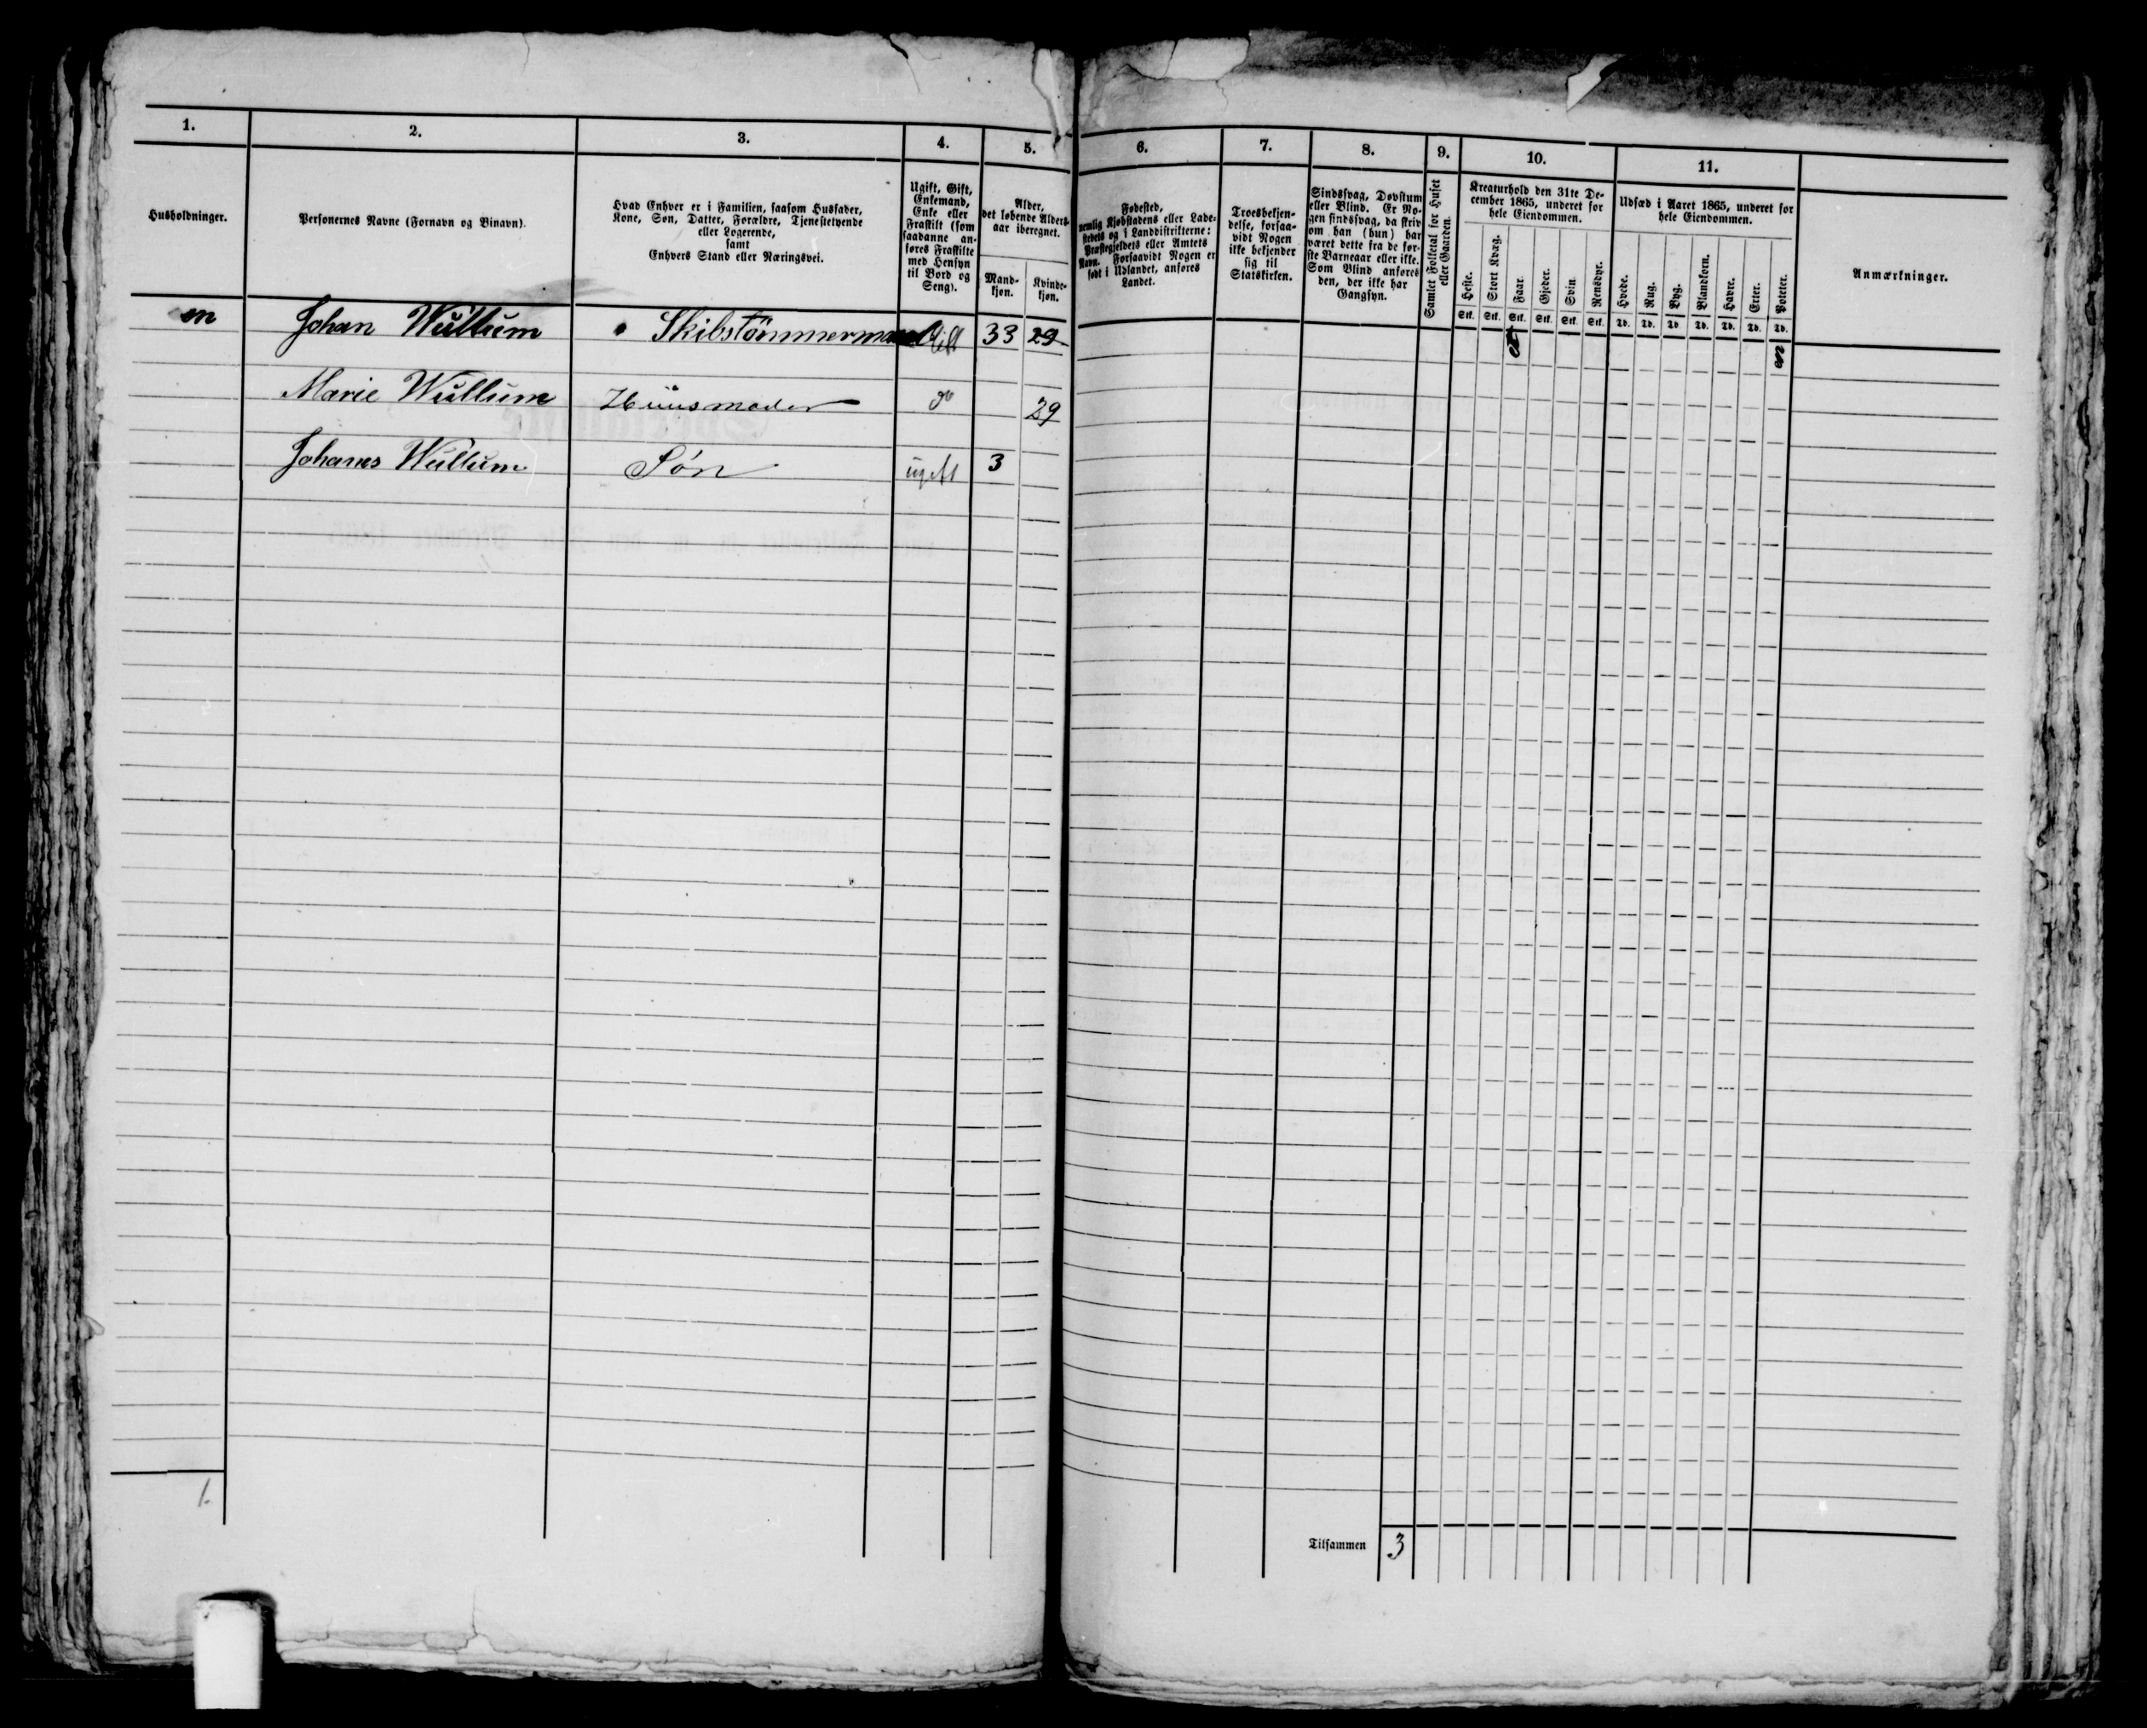 1. 2. 3. 4. 5. 6. 7. 8. 9. 10. 11.
Husholdninger.
Personernes Navne (Fornavn og Binavn).
Hvad Enhver er i Familien, saasom Husfader,
Kone, Søn, Datter, Forældre, Tjenestetyende
eller Logerende,
samt
Enhvers Stand eller Næringsvei.
Ugift, Gift,
Enkemand,
Enke eller
Fraskilt (som
saadanne an-
føres Fraskilte
med Hensyn
til Bord og
Seng).
Alder,
det løbende Alders-
aar iberegnet.
Mand-
kjøn.
Kvinde-
kjøn.
Fødested,
nemlig Kjøbstadens eller Lade-
stedets og i Landdistrikterne:
Præstegjeldets eller Amtets
Navn. Forsaavidt Nogen er
født i Udlandet, anføres
Landet.
Troesbekjen-
delse, forsaa-
vidt Nogen
ikke bekjender
sig til
Statskirken.
Sindssvag, Døvstum
eller Blind. Er No-
gen sindssvag, da skriv
om han (hun) har
været dette fra de før-
ste Barneaar eller ikke.
Som Blind anføres
den, der ikke har
Gangsyn.
Samlet Folketal for Huset
eller Gaarden.
Kreaturhold den 31te De-
cember 1865, underet for
hele Eiendommen.
Heste.
Stort Kvæg.
Faar.
Gjeder.
Svin.
Rensdyr.
Stk. Stk. Stk. Stk. Stk. Stk.
Udsæd i Aaret 1865, underet for
hele Eiendommen.
Hvede.
Rug.
Byg.
Blandkorn.
Havre.
Erter.
Poteter.
Td. Td. Td. Td. Td. Td. Td.
Anmærkninger.
en Johan Wullum Skibstømmermand Gift 33 29 et en
Marie Wullum Huusmoder do 29
Johanes Wullum Søn ugift 3
1.
Tilsammen 3